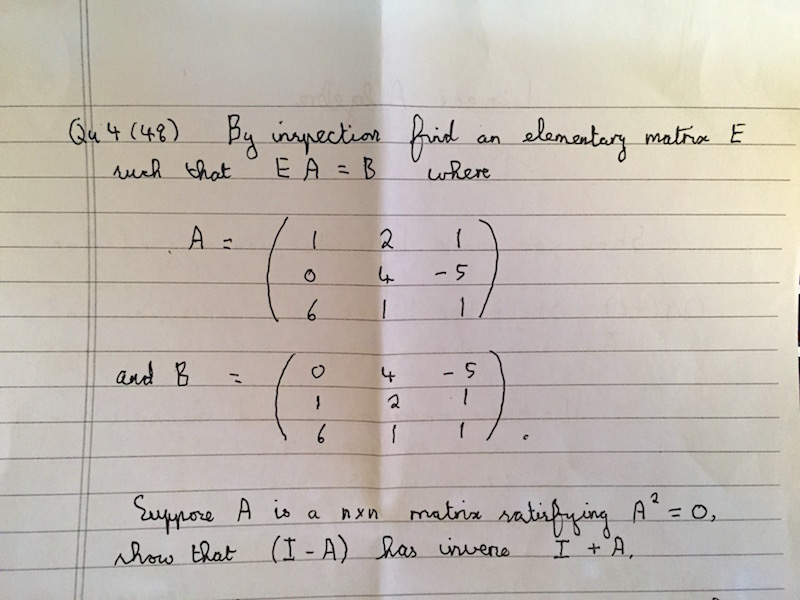 Qu 4 (48) By inspection find an elementary matrix E
such that E A = B where
A = ( 1 2 1
0 4 -5
6 1 1 )
and B = ( 0 4 -5
1 2 1
6 1 1 ) .
Suppose A is a n×n matrix satisfying A² = 0,
show that (I - A) has inverse I + A.